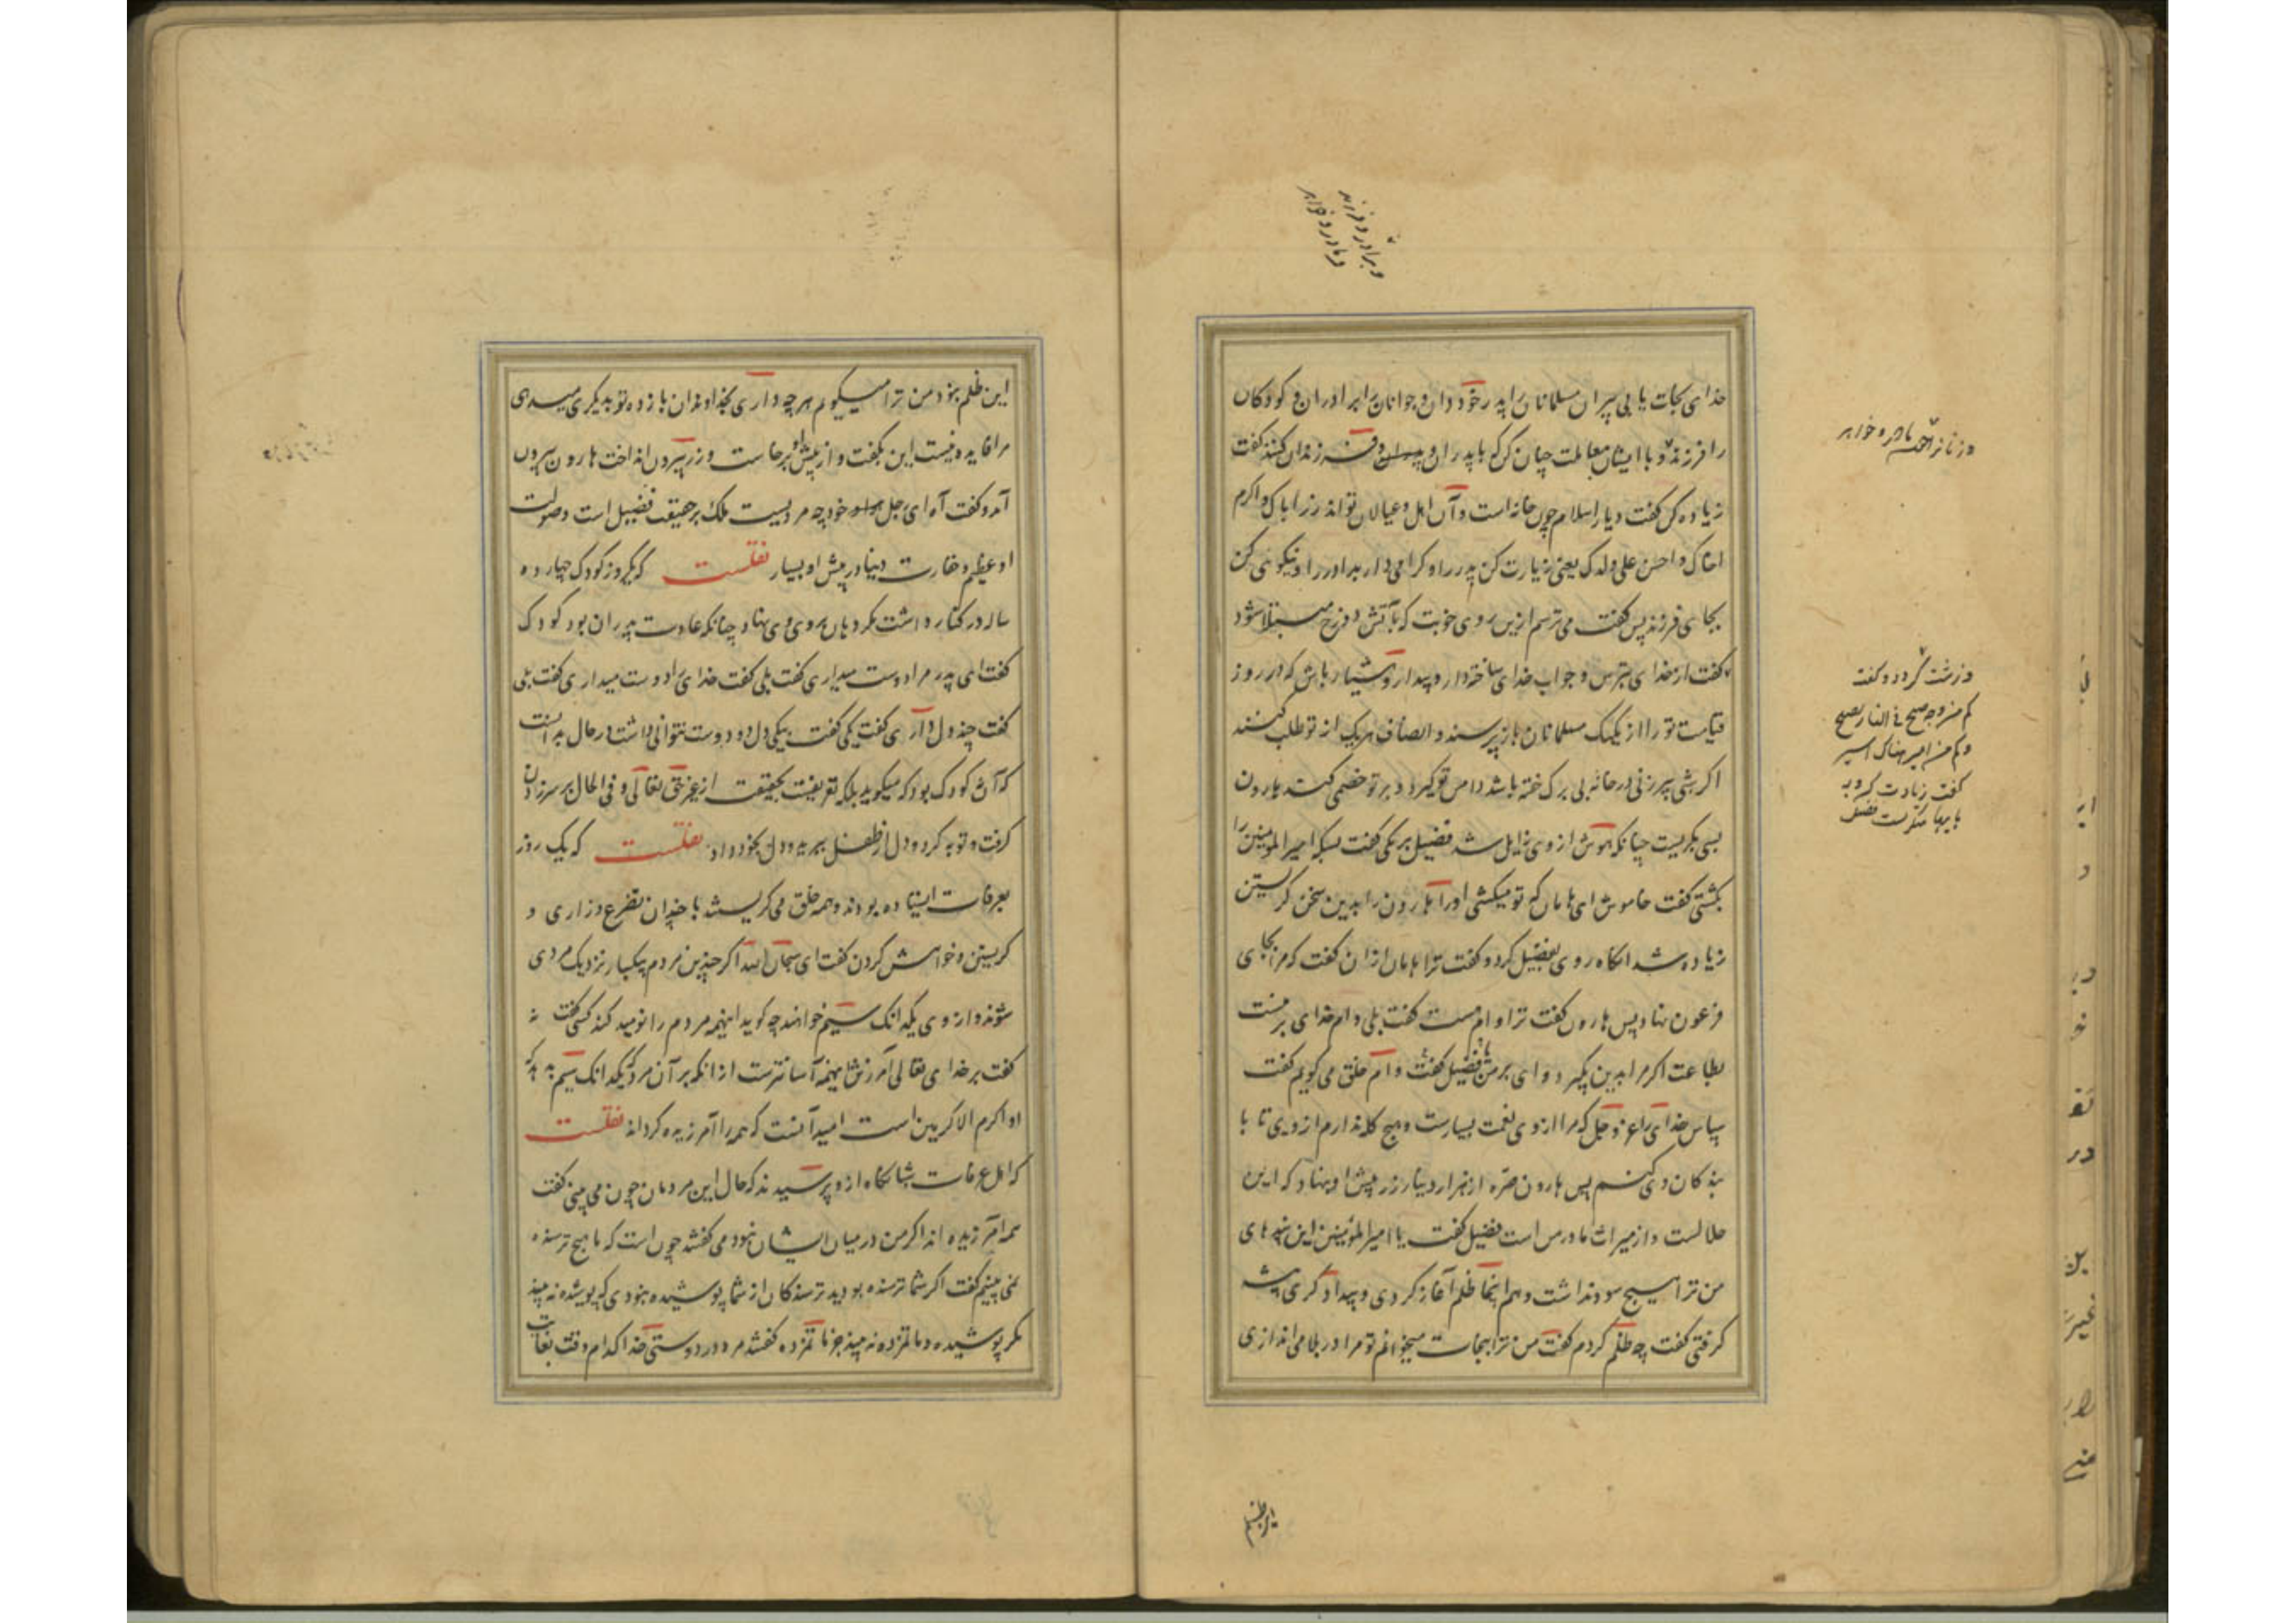 و برادر و فرزند
و مادر و خواهر
خدای نجات یابی پیران مسلمانان را پدر خود دان و جوانان را برادران و کودکان
را فرزند و با ایشان معاملت چنان کن که با پدران و پسران و فرزندان کنند گفت
زیاده کن گفت دیار اسلام چون خانه است و آن اهل و عیالان تواند زر اباک و اکرم
اخاک و احسن علی ولدک یعنی زیارت کن پدر را و کرامی دار برادر را و نیکوئی کن
بجای فرزند پس گفت می ترسم ازین روی خوبت که بآتش دوزخ مبتلا شود
گفت از خدای بترس و جواب خدای ساخته دار و بیدار و هشیار باش که در روز
قیامت تو را از یکیک مسلمانان باز پرسند و انصاف هریک از تو طلب کنند
اگر شبی پیرزنی در خانه بی برک خفته باشد دامن تو گیرد و بر تو خصمی کند هارون
بسی بگریست چنانکه هوش از وی زایل شد فضیل برمکی گفت بس که امیر المؤمنین را
بکشتی گفت خاموش ای هامان که تو میکشی او را هارون را بدین سخن گریستن
زیاده شد انگاه روی بفضیل کرد و گفت ترا هامان ازان گفت که مرا بجای
فرعون نهاد پس هارون گفت ترا وام هست گفت بلی وام خدای بر منست
بطاعت اگر مرا بدین بگیرد وای بر من فضیل گفت وام خلق می گویم گفت
سپاس خدای را عز و جل که مرا از وی نعمت بسیارست و هیچ گله ندارم از وی تا با
بندگان وی کنم پس هارون صره از هزار دینار زر پیش او بنهاد که این
حلالست و از میراث مادر من است فضیل گفت یا امیر المؤمنین این پندهای
من ترا هیچ سود نداشت و هم اینجا ظلم آغاز کردی و بیدادگری پیشه
گرفتی گفت چه ظلم کردم گفت من ترا بنجات میخوانم تو مرا در بلا می اندازی
و زشت گردد و گفت
کم من وجه صبیح فی النار یصیح
و کم من امیر هناک اسیر
گفت زیادت کن
این ظلم
این ظلم بود من ترا میگویم هر چه داری بخداوندان باز ده تو بدیگری میدهی
مرا فایده نیست این بگفت و از پیش او برخاست و زر بیرون انداخت هارون بیرون
آمد و گفت آه ای رجل هو خود چه مردیست ملک بر حقیقت فضیل است و صولت
او عظیم و حقارت دنیا در پیش او بسیار نقلست که یک روز کودک چهار ده
ساله در کنار داشت مگر دهان بر روی وی نهاد چنانکه عادت پدران بود کودک
گفت ای پدر مرا دوست میداری گفت بلی گفت خدای را دوست میداری گفت بلی
گفت چند دل داری گفت یکی گفت بیکی دل دو دوست نتوانی داشت در حال بدانست
که آن کودک بود که میگوید بلکه تعریفیست بحقیقت از عز حق تعالی و فی الحال بر سر زدن
گرفت و توبه کرد و دل از طفل ببرید و دل بخود داد نقلست که یک روز
بعرفات ایستاده بودند و همه خلق می گریستند با چندان تضرع و زاری و
گریستن و خواهش کردن گفت ای سبحان الله اگر چندین مردم بیکبار نزدیک مردی
شوند و از وی یکدانک سیم خواهند چه گوید اینهمه مردم را نومید کند کسی گفت نه
گفت بر خدای تعالی آمرزش اینهمه آسانترست از انکه بر آن مرد یکدانک سیم بدهد که
او اکرم الاکرمین است امید آنست که همه را آمرزیده گرداند نقلست
که اهل عرفات شبانگاه ازو پرسیدند که حال این مردمان چون می بینی گفت
همه آمرزیده اند اگر من در میان ایشان نبودمی گفتند چون است که ما هیچ ترسنده
نمی بینیم گفت اگر شما ترسنده بودید ترسندگان از شما پوشیده نبودی که پوشیده نه بیند
مگر پوشیده و ماتمزده نه بیند جز ماتمزده گفتند مرد در دوستی خدا کدام وقت بغایت